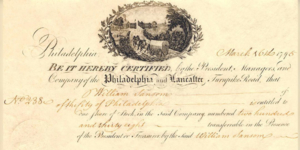 Philadelphia March 16th 1795
BE IT HEREBY CERTIFIED, by the President, Managers and
Company of the Philadelphia and Lancaster Turnpike Road, that
No. 238 William Sansom
of the City of Philadelphia is entitled to
One share of Stock, in the said Company numbered Two hundred
and thirty eight transferable in the Presence
of the President or Treasurer by the said William Sansom